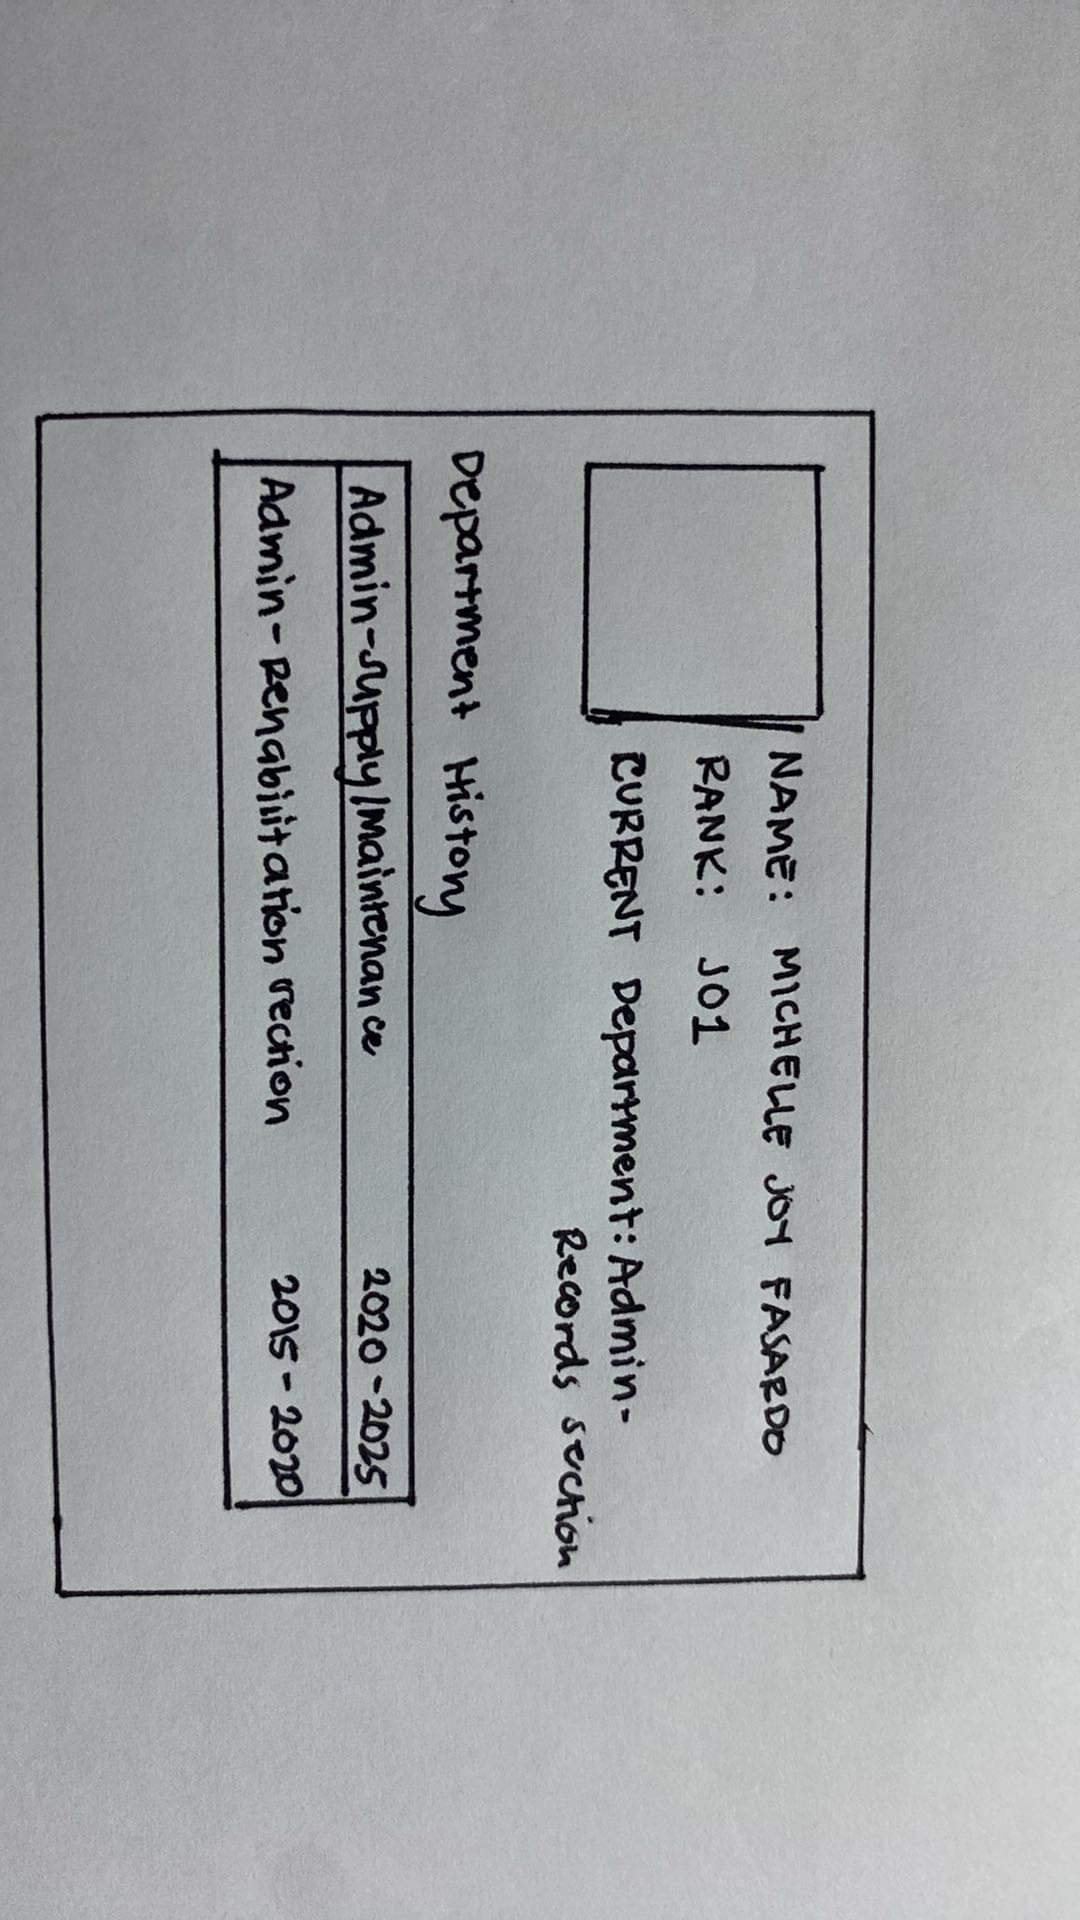 NAME: MICHELLE JOY FASARDO
RANK: JO1
CURRENT Department: Admin-
Records section
Department History
Admin-supply/maintenance 2020-2025
Admin-Rehabilitation section 2015-2020